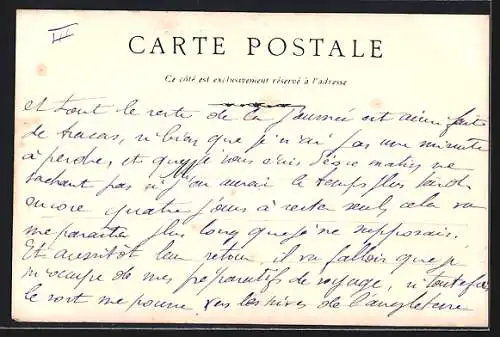 III
CARTE POSTALE
Ce côté est exclusivement réservé à l'adresse
et tout le reste de la journée est ainsi fait
de tracas, si bien que je n'ai pas une minute
à perdre, et que je vous écris dès ce matin ne
sachant pas si j'en aurai le temps plus tard.
encore quatre jours à rester seuls, cela va
me paraître plus long que je ne supposais.
Et aussitôt leur retour, il va falloir que je
m'occupe de mes préparatifs de voyage, si toutefois
le sort me pousse vers les rives de l'angleterre